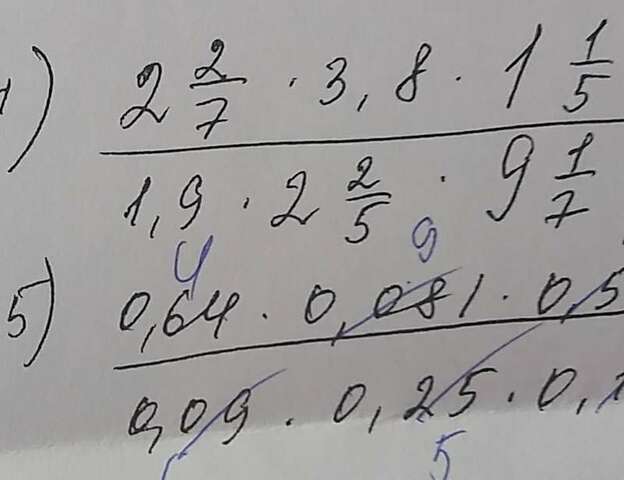 2 2/7 · 3,8 · 1 1/5
1,9 · 2 2/5 · 9 1/7
4 9
5) 0,64 · 0,081 · 0,5
0,09 · 0,25 · 0,
5